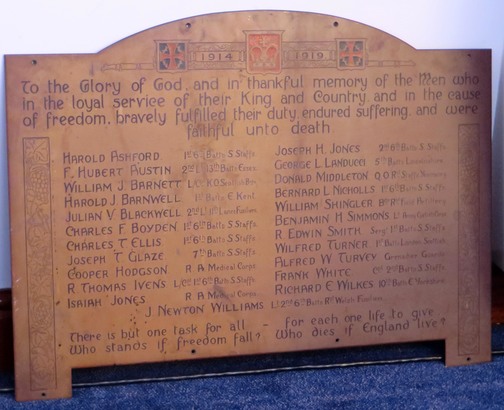 1914 1919
To the Glory of God, and in thankful memory of the Men who
in the loyal service of their King and Country, and in the cause
of freedom, bravely fulfilled their duty, endured suffering, and were
faithful unto death
HAROLD ASHFORD 1st 6th Batts S. Staffs
F. HUBERT AUSTIN 2nd Lt Batts Essex
WILLIAM J BARNETT
HAROLD J BARNWELL Batts E. Kent
JULIAN V BLACKWELL 2nd Lt
CHARLES F BOYDEN 1st 6th Batts S. Staffs
CHARLES T ELLIS 1st 6th Batts S. Staffs
JOSEPH T GLAZE 7th Batts S. Staffs
COOPER HODGSON R A Medical Corps
R THOMAS IVENS L/Cpl 1st 6th Batts S. Staffs
ISAIAH JONES R A Medical Corps
JOSEPH H. JONES 2nd 6th Batts S. Staffs
GEORGE L LANDUCCI 5th Batts
DONALD MIDDLETON Q.O.R. Staffs Yeomanry
BERNARD L NICHOLLS 1st 6th Batts S. Staffs
WILLIAM SHINGLER Rl Field Artillery
BENJAMIN H SIMMONS
R EDWIN SMITH Sergt 1st Batts S. Staffs
WILFRED TURNER 1st Batts London Scottish
ALFRED W TURVEY Grenadier Guards
FRANK WHITE 2nd Batts S. Staffs
RICHARD E WILKES 10th Batts E. Yorkshire
J NEWTON WILLIAMS Lt 2nd 6th Batts Rl Welsh Fusiliers
There is but one task for all – for each one life to give
Who stands if freedom fall? Who dies if England live?